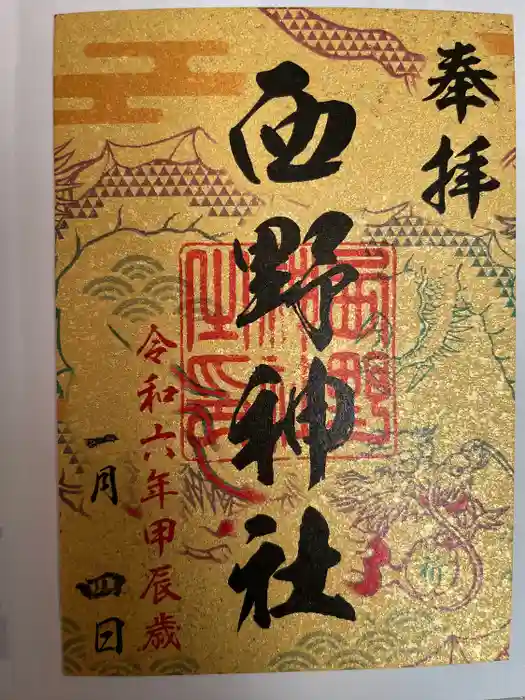 奉拝
西野神社
西野神社之印
令和六年甲辰歳
一月 四日